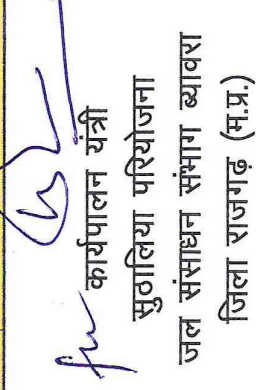 कार्यपालन यंत्री
सुठालिया परियोजना
जल संसाधन संभाग ब्यावरा
जिला राजगढ़ (म.प्र.)